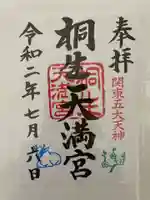 奉拝
関東五大天神
桐生天満宮
令和二年七月八日